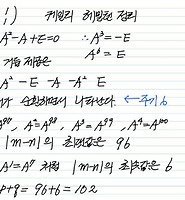 i) 케일리 해밀턴 정리
A²-A+E=0 ∴A³=-E
A⁶=E
거듭제곱은
A² -E -A -A² E
가 순환하면서 나타난다. ←주기6
A⁹⁷, A²=A⁹⁸, A³=A⁹⁹, A⁴=A¹⁰⁰
|m-n|의 최댓값은 96
A¹=A⁷ 처럼 |m-n|의 최솟값은 6
p+q=96+6=102